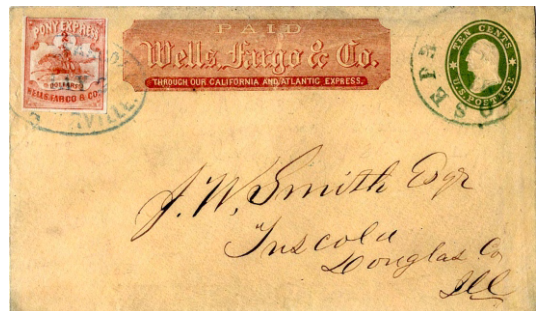 PONY EXPRESS
WELLS, FARGO & CO.
PAID
Wells, Fargo & Co.
THROUGH OUR CALIFORNIA AND ATLANTIC EXPRESS.
TEN CENTS
U.S. POSTAGE
J. W. Smith Esqr
Tuscola
Douglas Co
Ill